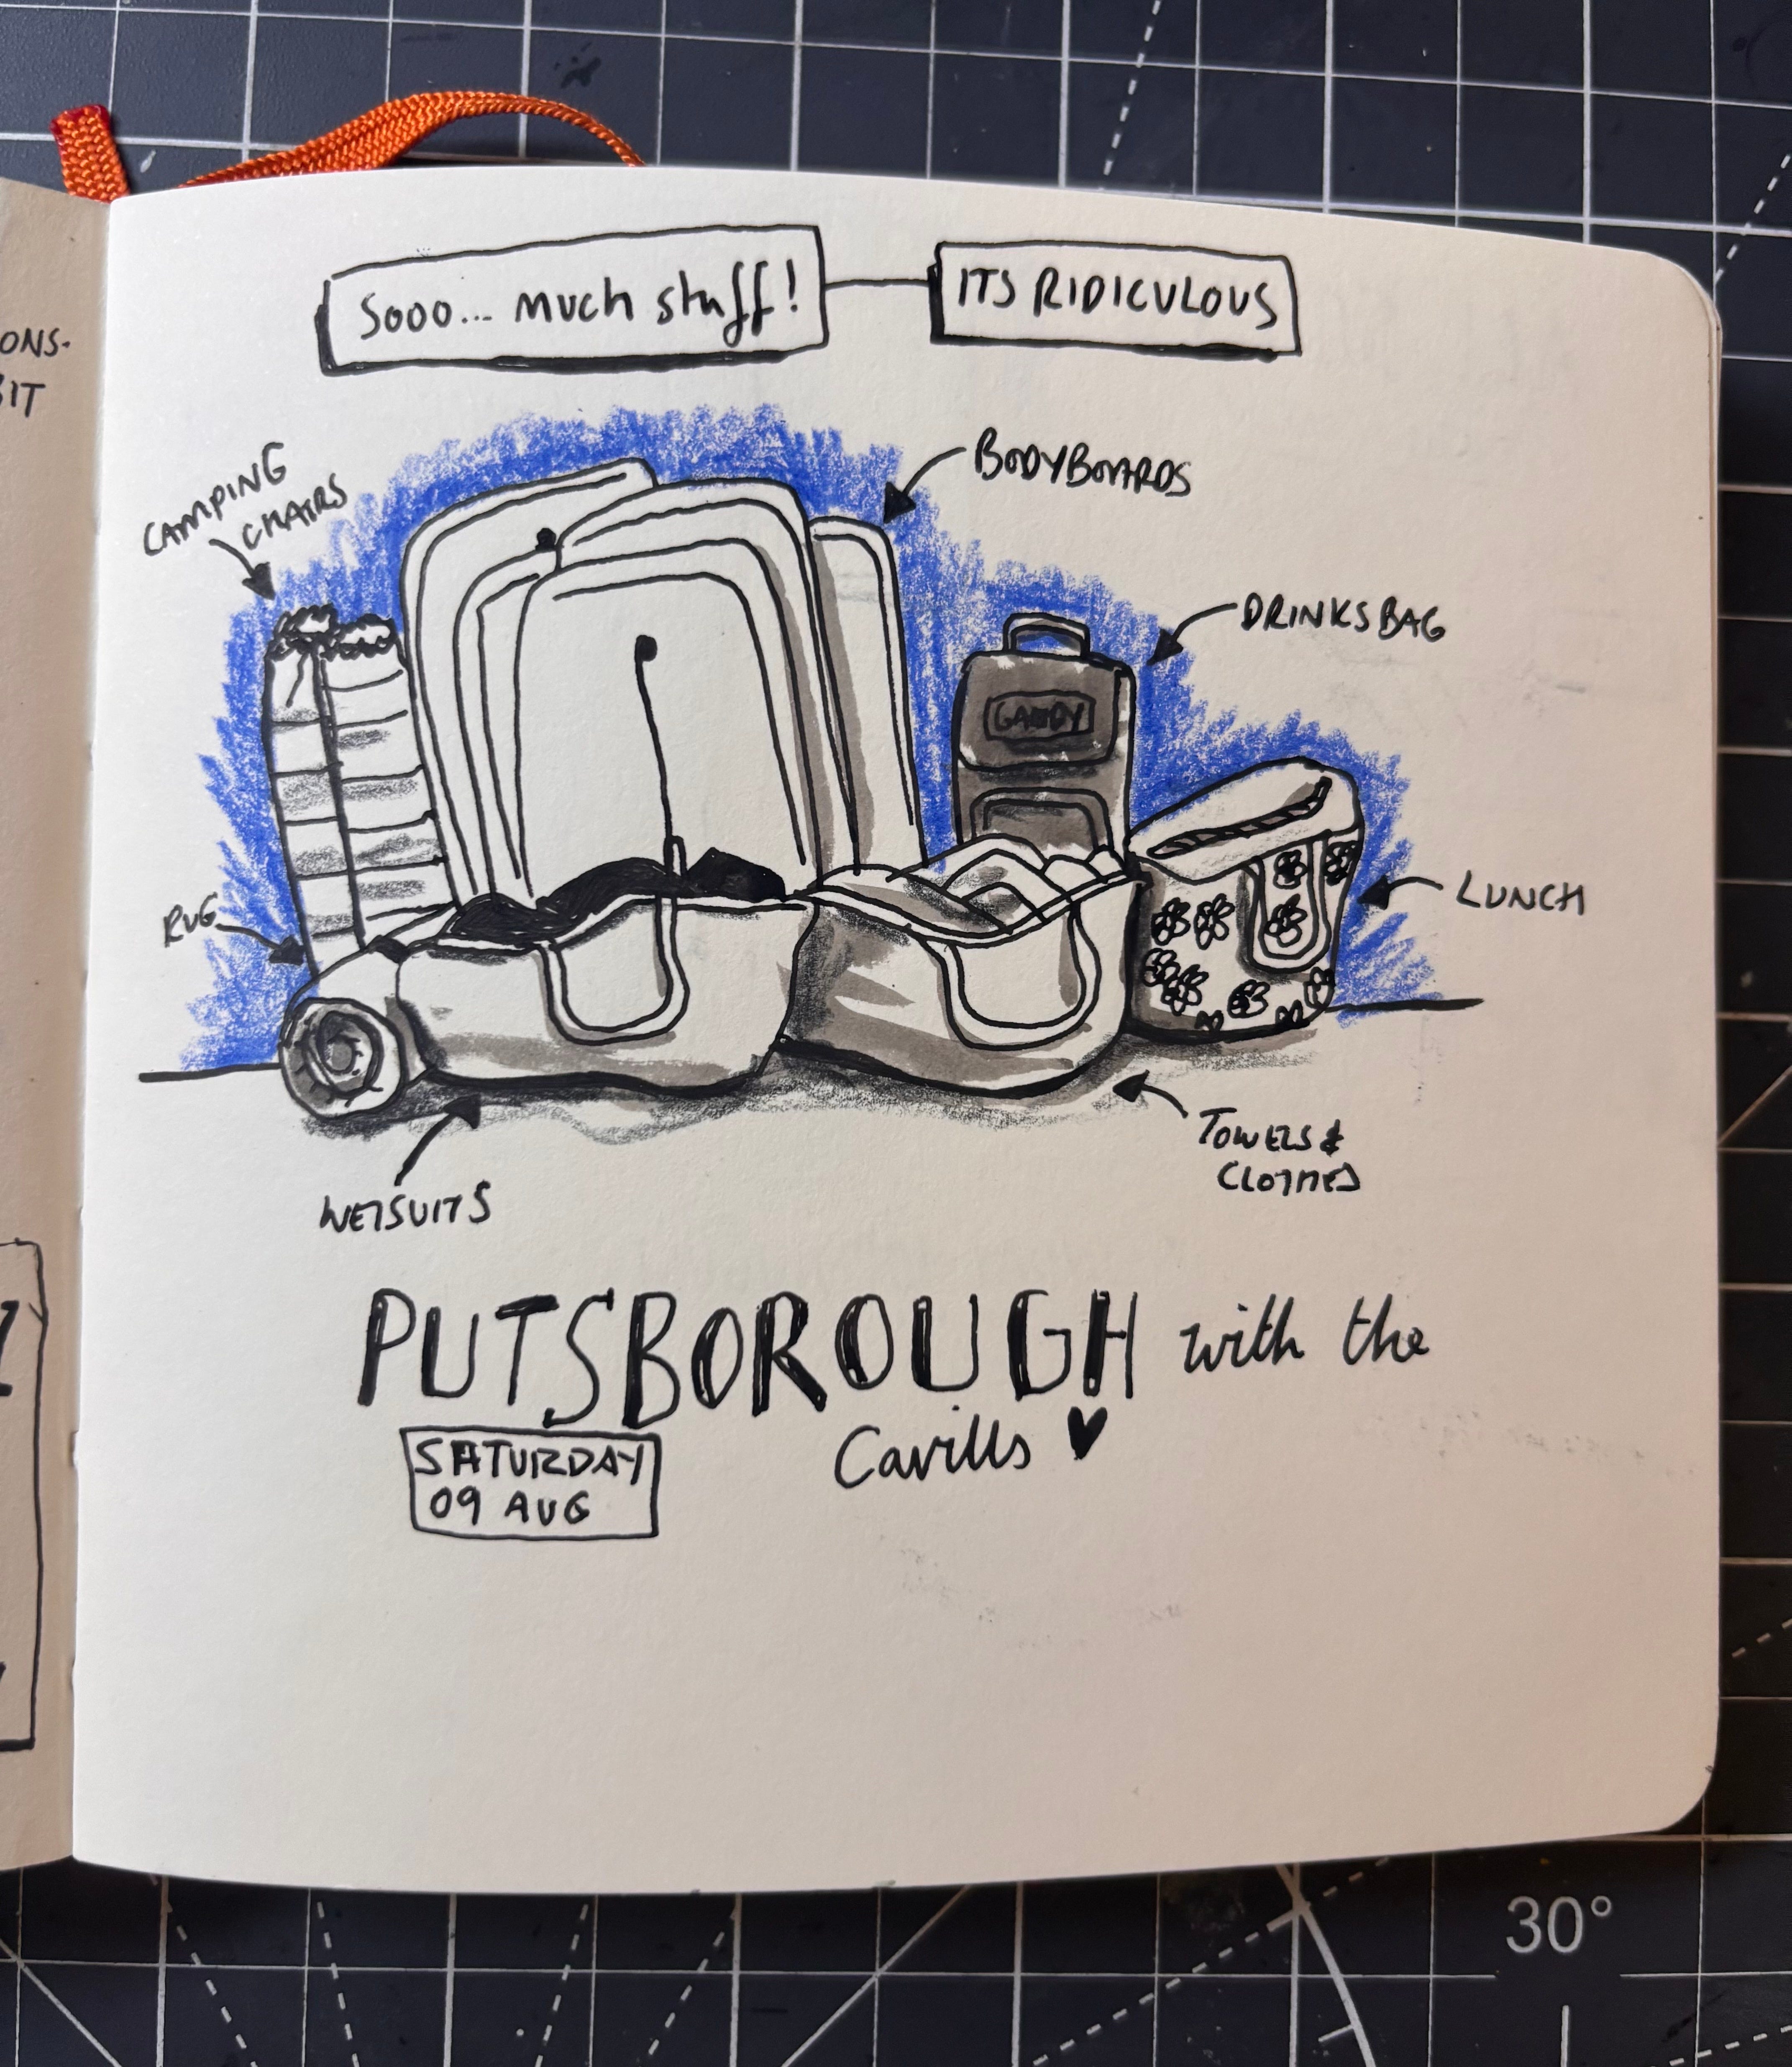 ONS.
BIT
Sooo... much stuff!
ITS RIDICULOUS
CAMPING
CHAIRS
BODYBOARDS
DRINKS BAG
LUNCH
RUG
WETSUITS
TOWELS &
CLOTHES
PUTSBOROUGH with the
Cavills ♥
SATURDAY
09 AUG
30°